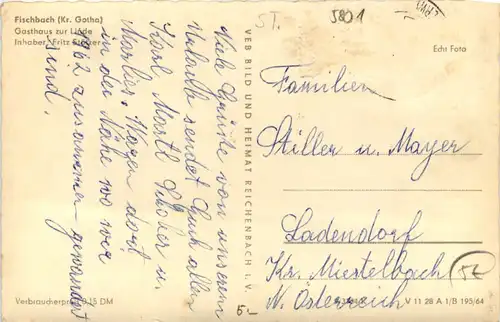 Fischbach (Kr. Gotha)
Gasthaus zur Linde
Inhaber: Fritz
ST.
5801
Echt Foto
Viele Grüße von unserem
Urlaub sendet Euch allen
Karl Martl u.
Marlies. Wagen dort
in der Nähe wo wir
1962 zusammen gewandert
sind.
VEB BILD UND HEIMAT REICHENBACH i. V.
Familien
Stiller u. Mayer
Ladendorf
Kr. Miestelbach
N. Österreich
56
Verbraucherpreis 0,15 DM
5.-
V 11 28 A 1/B 195/64